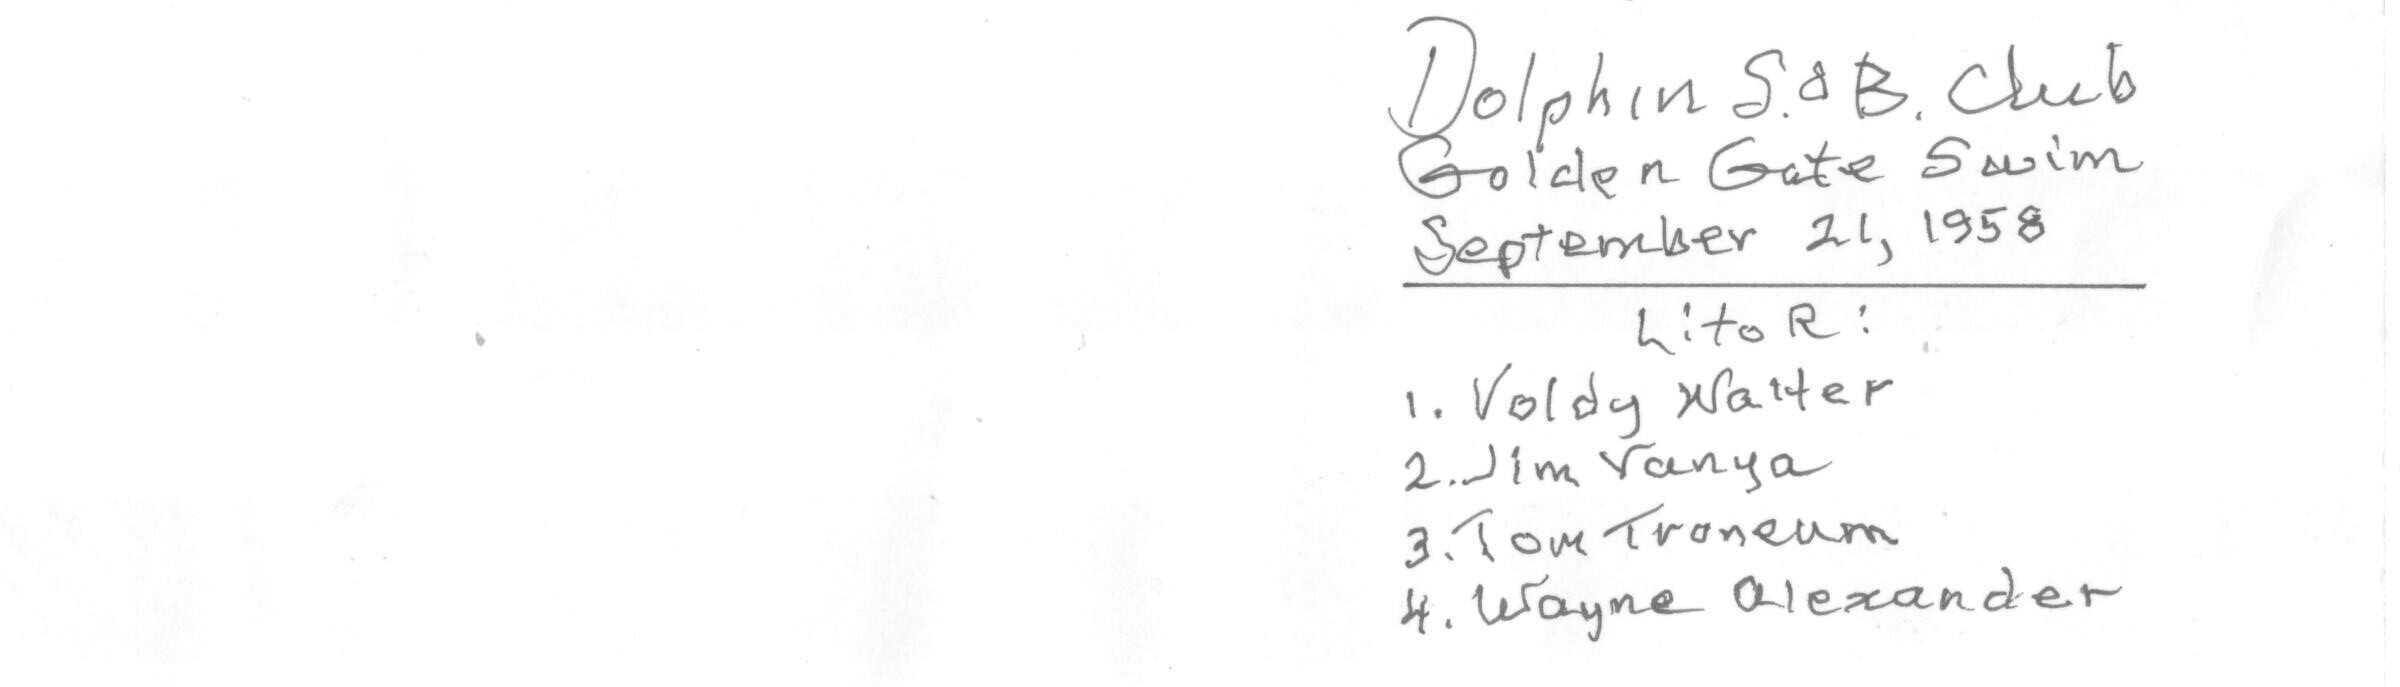 Dolphin S. & B. Club
Golden Gate Swim
September 21, 1958
L: to R:
1. Voldy Walter
2. Jim Vanya
3. Tom Troneum
4. Wayne Alexander